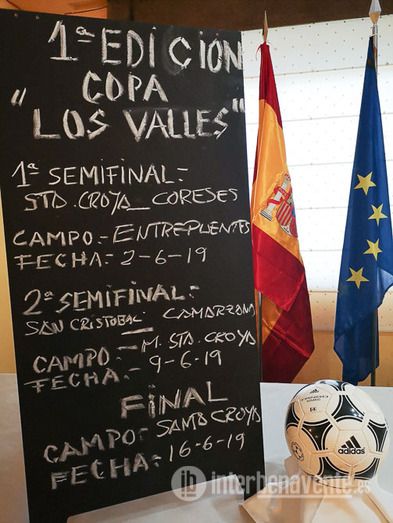 1ª EDICION
COPA
"LOS VALLES"
1ª SEMIFINAL-
STA. CROYA_ CORESES
CAMPO.- ENTREPUENTES
FECHA:- 2-6-19
2ª SEMIFINAL:-
SAN CRISTOBAL - CAMARZANA
CAMPO:- M. STA. CROYA
FECHA:- 9-6-19
FINAL
CAMPO:- SANTA CROYA
FECHA:- 16-6-19
adidas
interbenavente.es